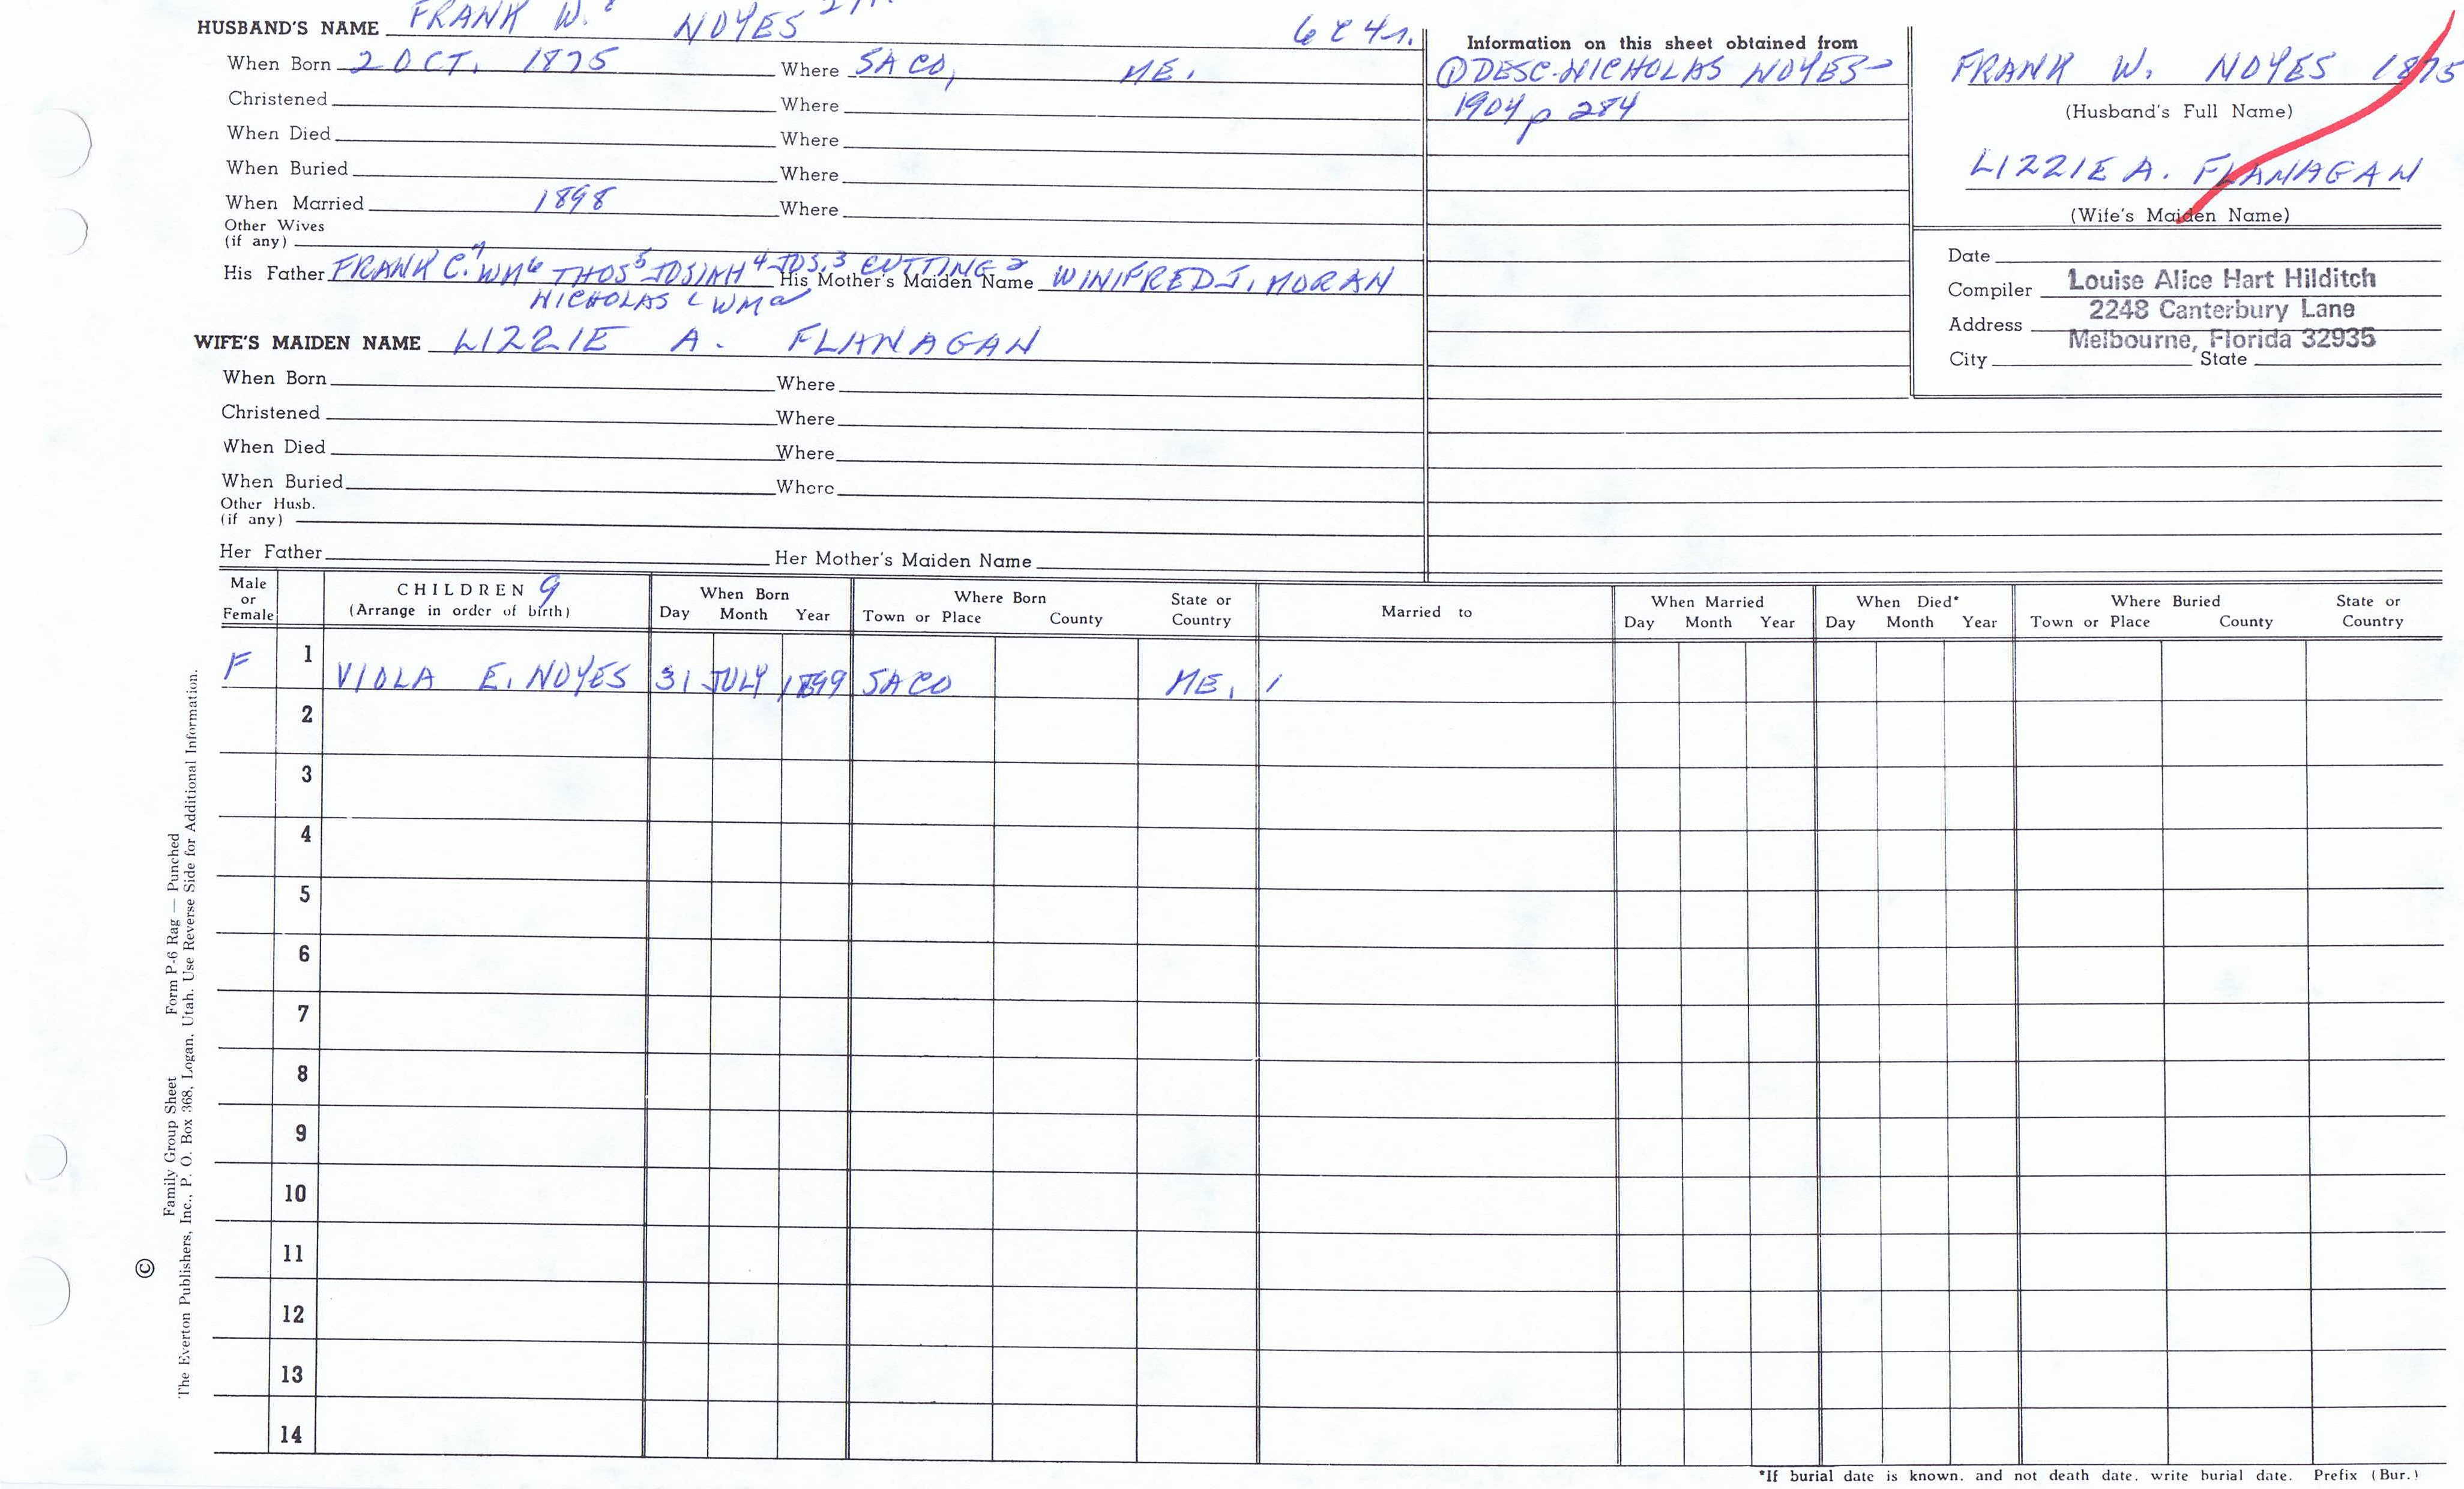 HUSBAND'S NAME FRANK W. 8 NOYES
When Born 2 OCT. 1875 Where SACO, ME.
Christened Where
When Died Where
When Buried Where
When Married 1898 Where
Other Wives
(if any)
His Father FRANK C.7 WM6 THOS5 JOSIAH4 JOS.3 CUTTING2 His Mother's Maiden Name WINIFRED J. MORAN
NICHOLAS
WIFE'S MAIDEN NAME LIZZIE A. FLANAGAN
When Born Where
Christened Where
When Died Where
When Buried Where
Other Husb.
(if any)
Her Father Her Mother's Maiden Name
Information on this sheet obtained from
① DESC. NICHOLAS NOYES-
1904 p 284
FRANK W. NOYES 1875
(Husband's Full Name)
LIZZIE A. FLANAGAN
(Wife's Maiden Name)
Date
Compiler Louise Alice Hart Hilditch
Address 2248 Canterbury Lane
Melbourne, Florida 32935
City State
Male or Female CHILDREN 9 (Arrange in order of birth) When Born Day Month Year Where Born Town or Place County State or Country Married to When Married Day Month Year When Died* Day Month Year Where Buried Town or Place County State or Country
F 1 VIOLA E. NOYES 31 JULY 1899 SACO ME.
2
3
4
5
6
7
8
9
10
11
12
13
14
*If burial date is known, and not death date, write burial date. Prefix (Bur.)
© Family Group Sheet Form P-6 Rag — Punched
The Everton Publishers, Inc., P. O. Box 368, Logan, Utah. Use Reverse Side for Additional Information.